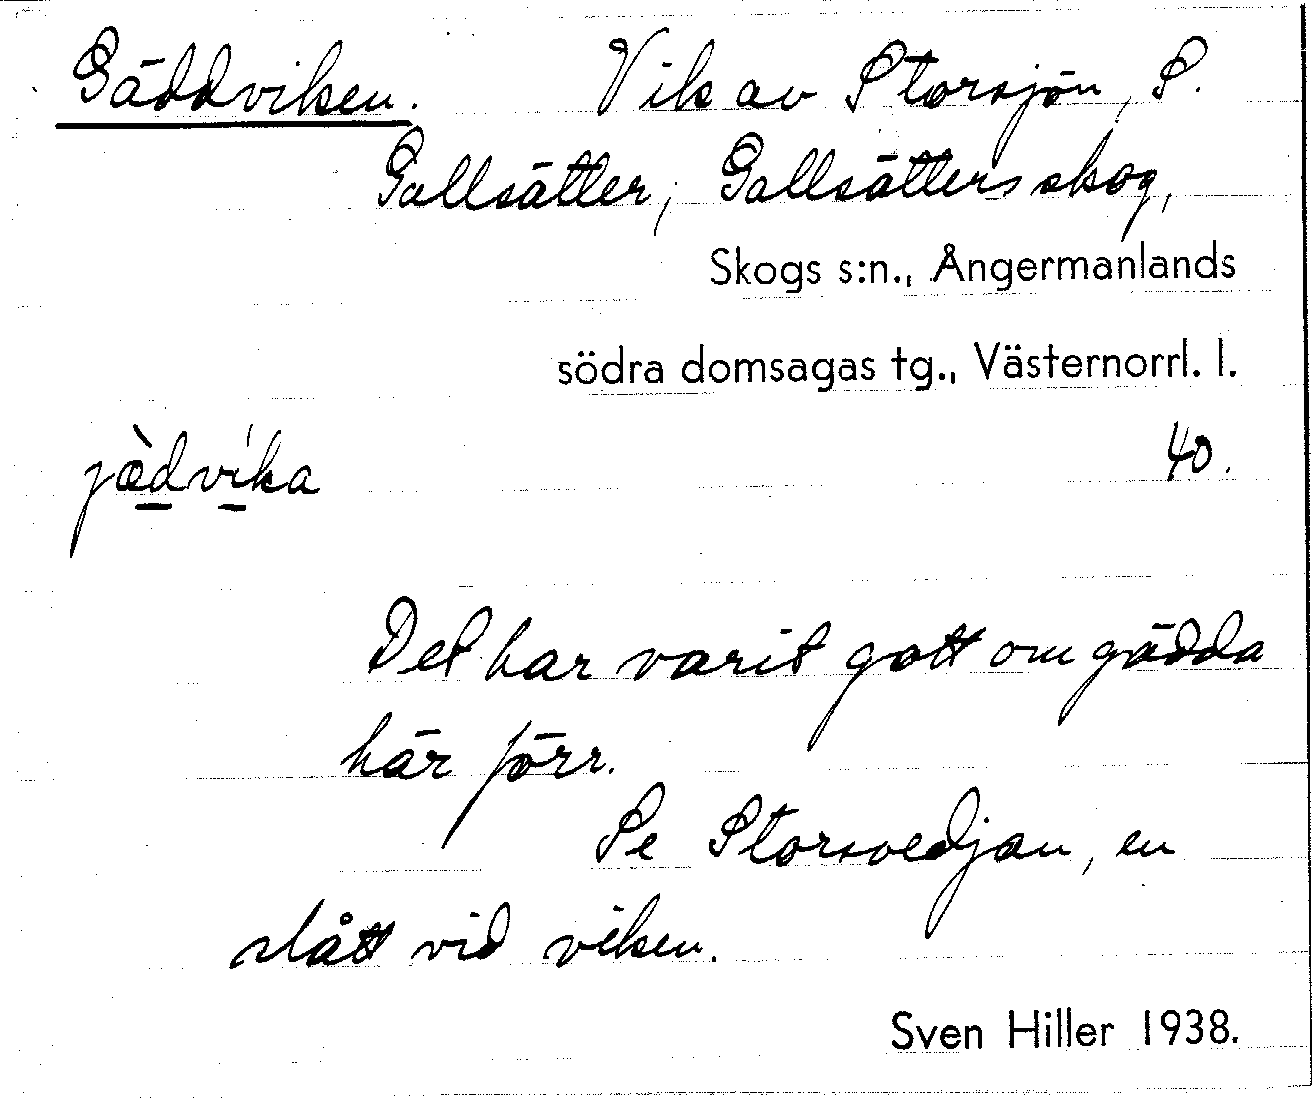 Gäddviken. Vik av Storsjön, S.
Gallsätter, Gallsätters skog,
Skogs s:n., Ångermanlands
södra domsagas tg., Västernorrl. l.
jæ̀dvíka 40.
Det har varit gott om gädda
här förr.
Se Storsvedjan, en
slått vid viken.
Sven Hiller 1938.